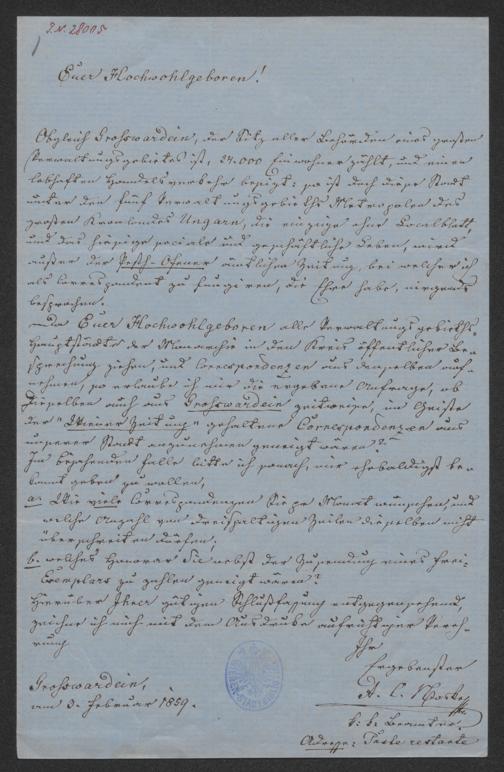 J.N. 28005
Euer Hochwohlgeboren!
Obgleich Grosswardein, der Sitz aller Behörden eines großen
Verwaltungsgebietes ist, 24.000 Einwohner zählt, und einen
lebhaften Handelsverkehr besizt: so ist doch diese Stadt
unter den fünf Verwaltungsgebieths Metropolen des
großen Kronlandes Ungarn, die einzige ohne Localblatt,
und das hiesige sociale und geschäftliche Leben, wird
außer der Pesth-Ofener ämtlichen Zeitung, bei welcher ich
als Correspondent zu fungieren, die Ehre habe, nirgends
besprochen.
Da Euer Hochwohlgeboren alle Verwaltungsgebieths-
hauptstädte der Monarchie in den Kreis öffentlicher Be-
sprechung ziehen, und Correspondenzen aus denselben auf-
nehmen, so erlaube ich mir die ergebene Anfrage, ob
Dieselben auch aus Grosswardein zeitweise, im Geiste
der "Wiener Zeitung" gehaltene Correspondenzen aus
unserer Stadt anzunehmen geneigt wären?
Im bejahenden Falle bitte ich sonach, mir ehebaldigst be-
kannt geben zu wollen,
a. Wie viele Correspondenzen Sie pr Monat wünschen, und
welche Anzahl von dreispaltigen Zeilen dieselben nicht
überschreiten dürfen;
b. welches Honorar Sie nebst der Zusendung eines Frei-
Exemplars zu zahlen geneigt wären?
Hierüber Ihrer gütigen Schlußfassung entgegensehend,
zeichne ich mich mit dem Ausdruke aufrichtiger Vereh-
rung
Ihr
Ergebenster
A. C.
k: k: Beamter.
Grosswardein,
am 3. Februar 1859.
Adresse: Poste restante